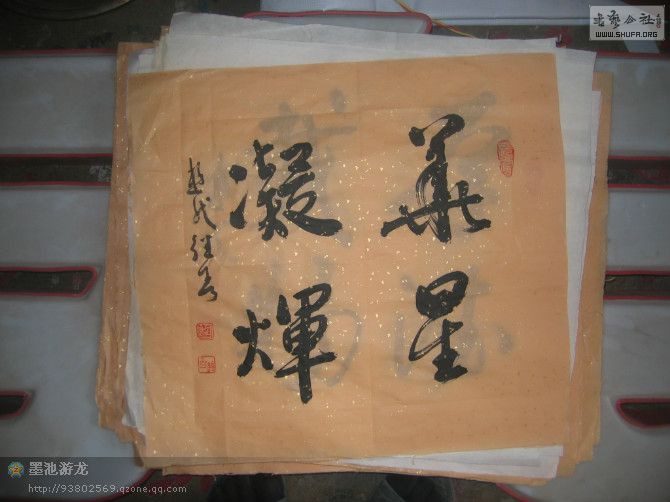 華星
凝輝
書艺公社
WWW.SHUFA.ORG
墨池游龙
http://93802569.qzone.qq.com